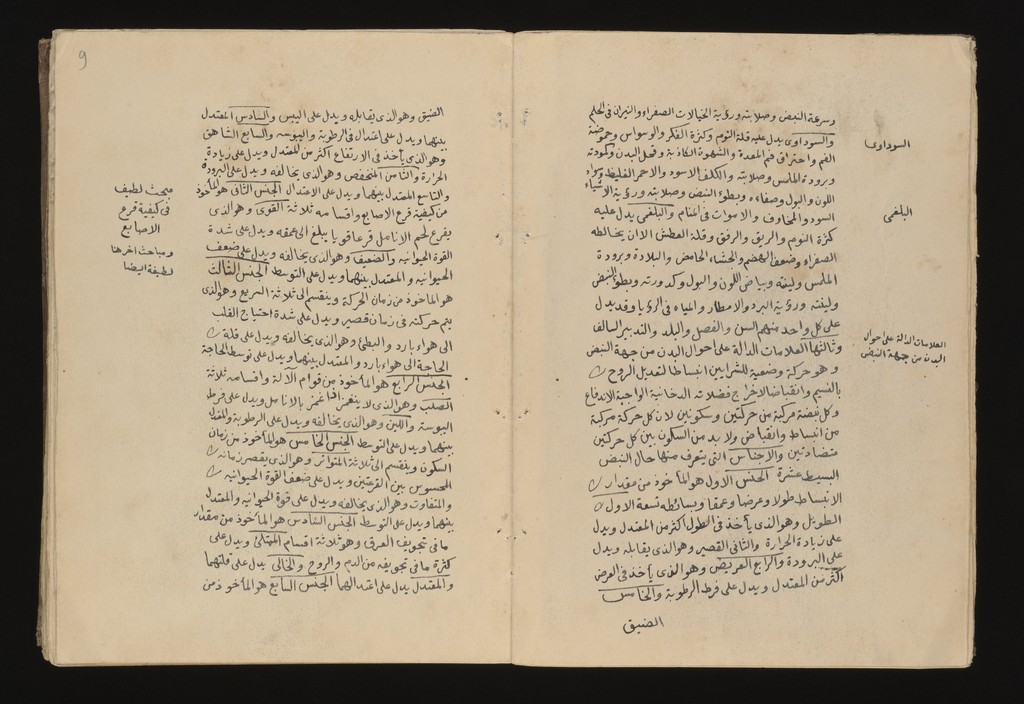 وسرعة النبض وصلابته ورؤية الخيالات الصفراء والنيران فى الحلم
والسوداوى يدل عليه قلة النوم وكثرة الفكر والوسواس وحموضة
الفم واحتراق فم المعدة والشهوة الكاذبة وقحل البدن وكمودته
وبرودة الملمس وصلابته والكلف الاسود والاحمر الغليظ
اللون والبول وصفاءه وبطؤ النبض وصلابته ورؤية الاشياء
السود والمخاوف والاموات فى المنام والبلغمى يدل عليه
كثرة النوم والريق والرفق وقلة العطش الا ان يخالطه
الصفراء وضعف الهضم والجشاء الحامض والبلادة وبرودة
الملمس ولينه وبياض اللون والبول وكدورته وبطؤ النبض
ولينته ورؤية البرد والامطار والمياه فى الرؤيا وقد يدل
على كل واحد منهم السن والفصل والبلد والتدبير السالف
وثالثها العلامات الدالة على احوال البدن من جهة النبض
وهو حركة وضعية للشرايين انبساطا لتعديل الروح
بالنسيم وانقباضا لاخراج فضلاته الدخانية الواجبة الاندفاع
وكل نبضة مركبة من حركتين وسكونين لان كل حركة مركبة
من انبساط وانقباض ولا بد من السكون بين كل حركتين
متضادتين والاجناس التى يتعرف منها حال النبض
البسيط عشرة الجنس الاول هو المأخوذ من مقدار
الانبساط طولا وعرضا وعمقا وبسائطه تسعة الاول
الطويل وهو الذى يأخذ فى الطول اكثر من المعتدل ويدل
على زيادة الحرارة والثانى القصير وهو الذى يقابله ويدل
على البرودة والرابع العريض وهو الذى يأخذ فى العرض
اكثر من المعتدل ويدل على فرط الرطوبة والخامس
الضيق
السوداوى
البلغمى
العلامات الدالة على احوال
البدن من جهة النبض
٩
الضيق وهو الذى يقابله ويدل على اليبس والسادس المعتدل
بينهما ويدل على اعتدال فى الرطوبة واليبوسه والسابع الشاهق
وهو الذى يأخذ فى الارتفاع اكثر من المعتدل ويدل على زيادة
الحرارة والثامن المنخفض وهو الذى يخالفه ويدل على البرودة
والتاسع المعتدل بينهما ويدل على الاعتدال الجنس الثانى هو المأخوذ
من كيفية قرع الاصابع واقسامه ثلاثة القوى وهو الذى
يقرع لحم الانامل قرعا قويا يبلغ الى عمقه ويدل على شدة
القوة الحيوانيه والضعيف وهو الذى يخالفه ويدل على ضعف
الحيوانيه والمعتدل بينهما ويدل على التوسط الجنس الثالث
هو المأخوذ من زمان الحركة وينقسم الى ثلاثة السريع وهو الذى
يتم حركته فى زمان قصير ويدل على شدة احتياج القلب
الى هواء بارد والبطئ وهو الذى يخالفه ويدل على قلة
الحاجة الى هواء بارد والمعتدل بينهما ويدل على توسط الحاجة
الجنس الرابع هو المأخوذ من قوام الآلة واقسامه ثلاثة
الصلب وهو الذى لا ينغمز اذا غمز بالانامل ويدل على فرط
اليبوسة واللين وهو الذى يخالفه ويدل على الرطوبة والمعتدل
بينهما ويدل على التوسط الجنس الخامس هو المأخوذ من زمان
السكون وينقسم الى ثلاثة المتواتر وهو الذى يقصر زمانه
المحسوس بين القرعتين ويدل على ضعف القوة الحيوانيه
والمتفاوت وهو الذى يخالفه ويدل على قوة الحيوانيه والمعتدل
بينهما ويدل على التوسط الجنس السادس هو المأخوذ من مقدار
ما فى تجويف العرق وهو ثلاثة اقسام الممتلئ ويدل على
كثرة ما فى تجويفه من الدم والروح والخالى يدل على قلتهما
والمعتدل يدل على اعتدالهما الجنس السابع هو المأخوذ من
مبحث لطيف
فى كيفية قرع
الاصابع
ومباحث اخر هنا
لطيفة ايضا